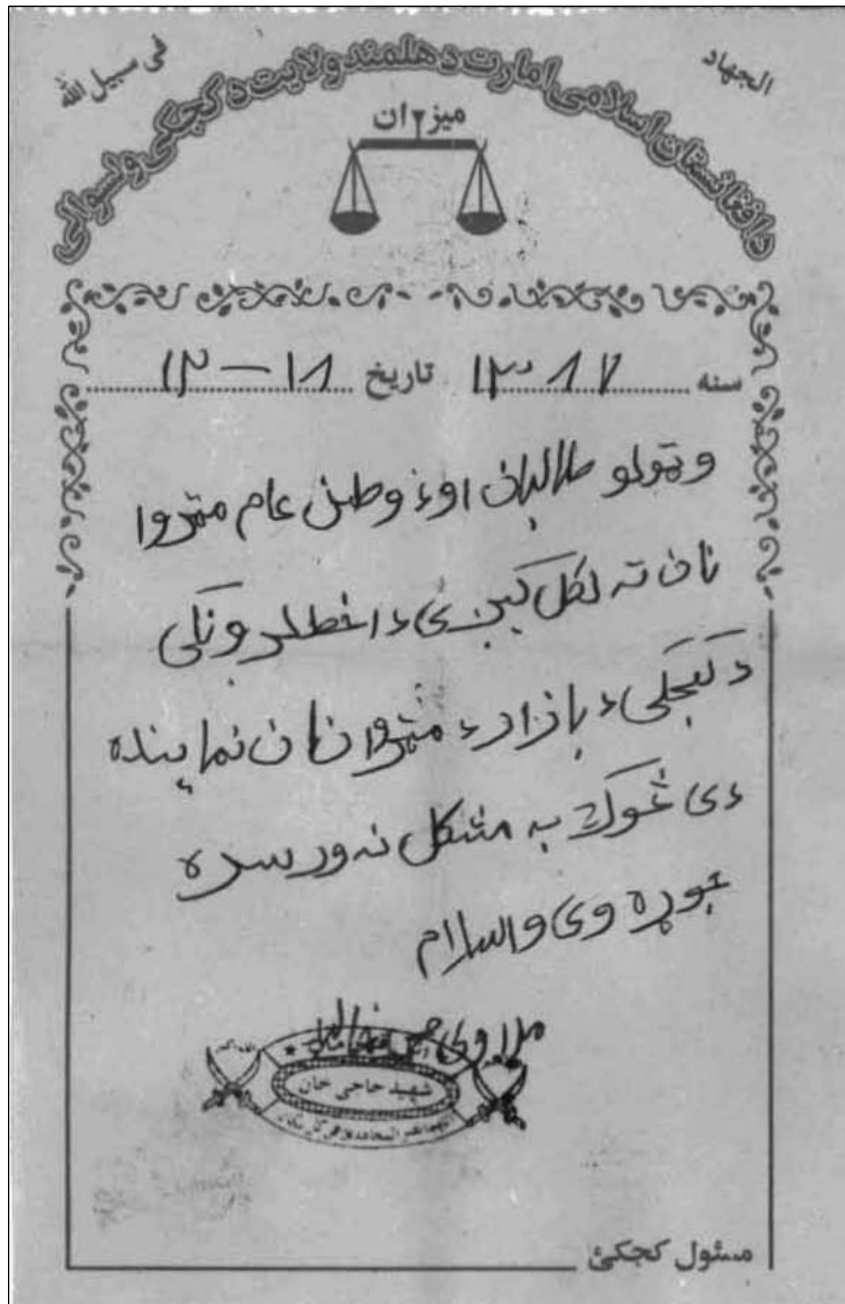 الجهاد
فی سبیل الله
د افغانستان اسلامی امارت د هلمند ولایت د کجکی ولسوالی
میزان
سنه ۱۳۸۷ تاریخ ۱۸ — ۱۲
و ټولو طالبان او د وطن عام مشروا
نان ته لکل کیږی د اخط لرونکی
د کجکی د بازار د مشروانان نماینده
دی څوک به مشکل نه ورسره
جوړه وی والسلام
شهید حاجی خان
مسئول کجکئ